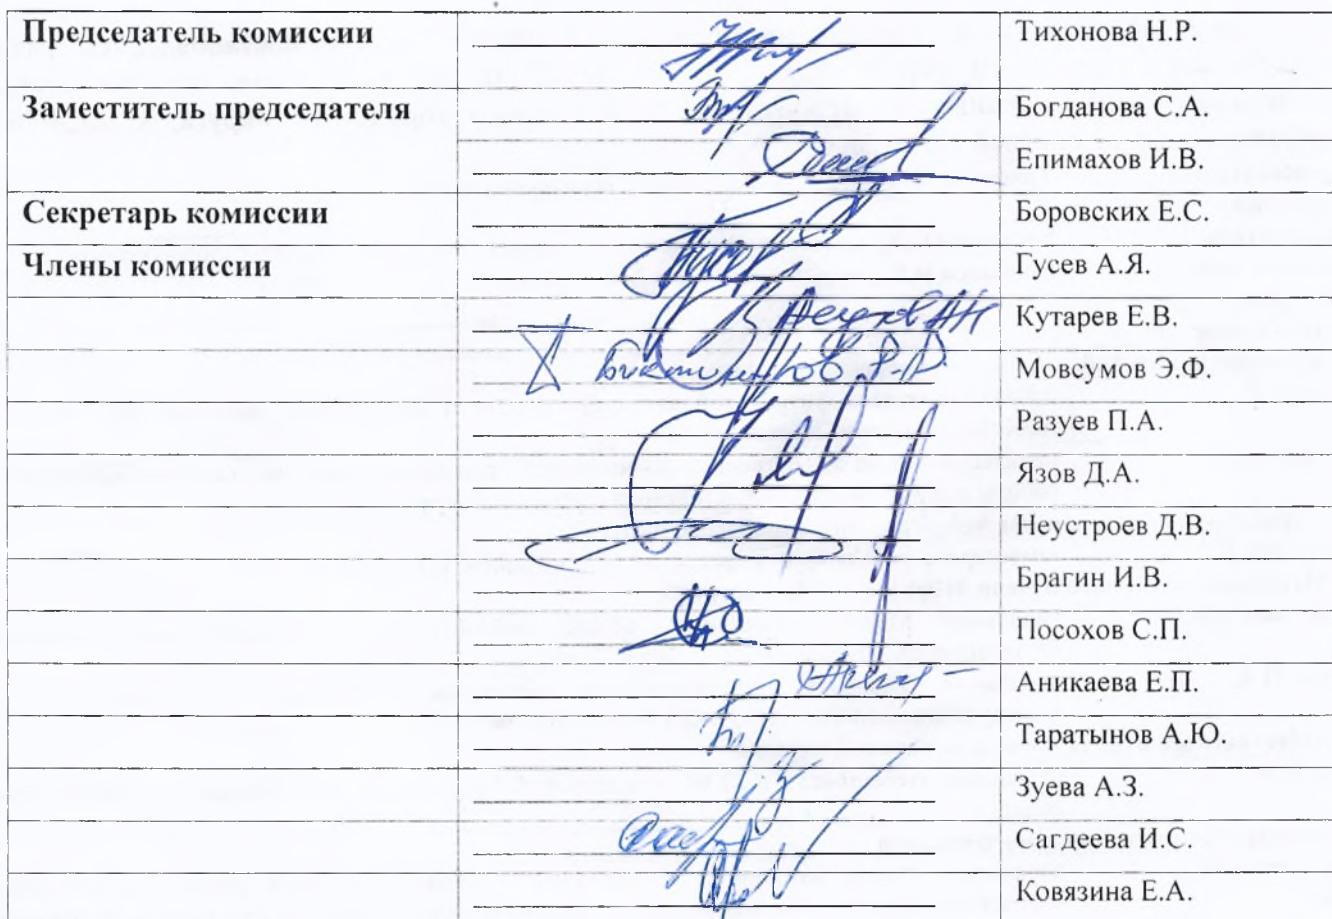 Председатель комиссии Тихонова Н.Р.
Заместитель председателя Богданова С.А.
Епимахов И.В.
Секретарь комиссии Боровских Е.С.
Члены комиссии Гусев А.Я.
Кутарев Е.В.
Мовсумов Э.Ф.
Разуев П.А.
Язов Д.А.
Неустроев Д.В.
Брагин И.В.
Посохов С.П.
Аникаева Е.П.
Таратынов А.Ю.
Зуева А.З.
Сагдеева И.С.
Ковязина Е.А.